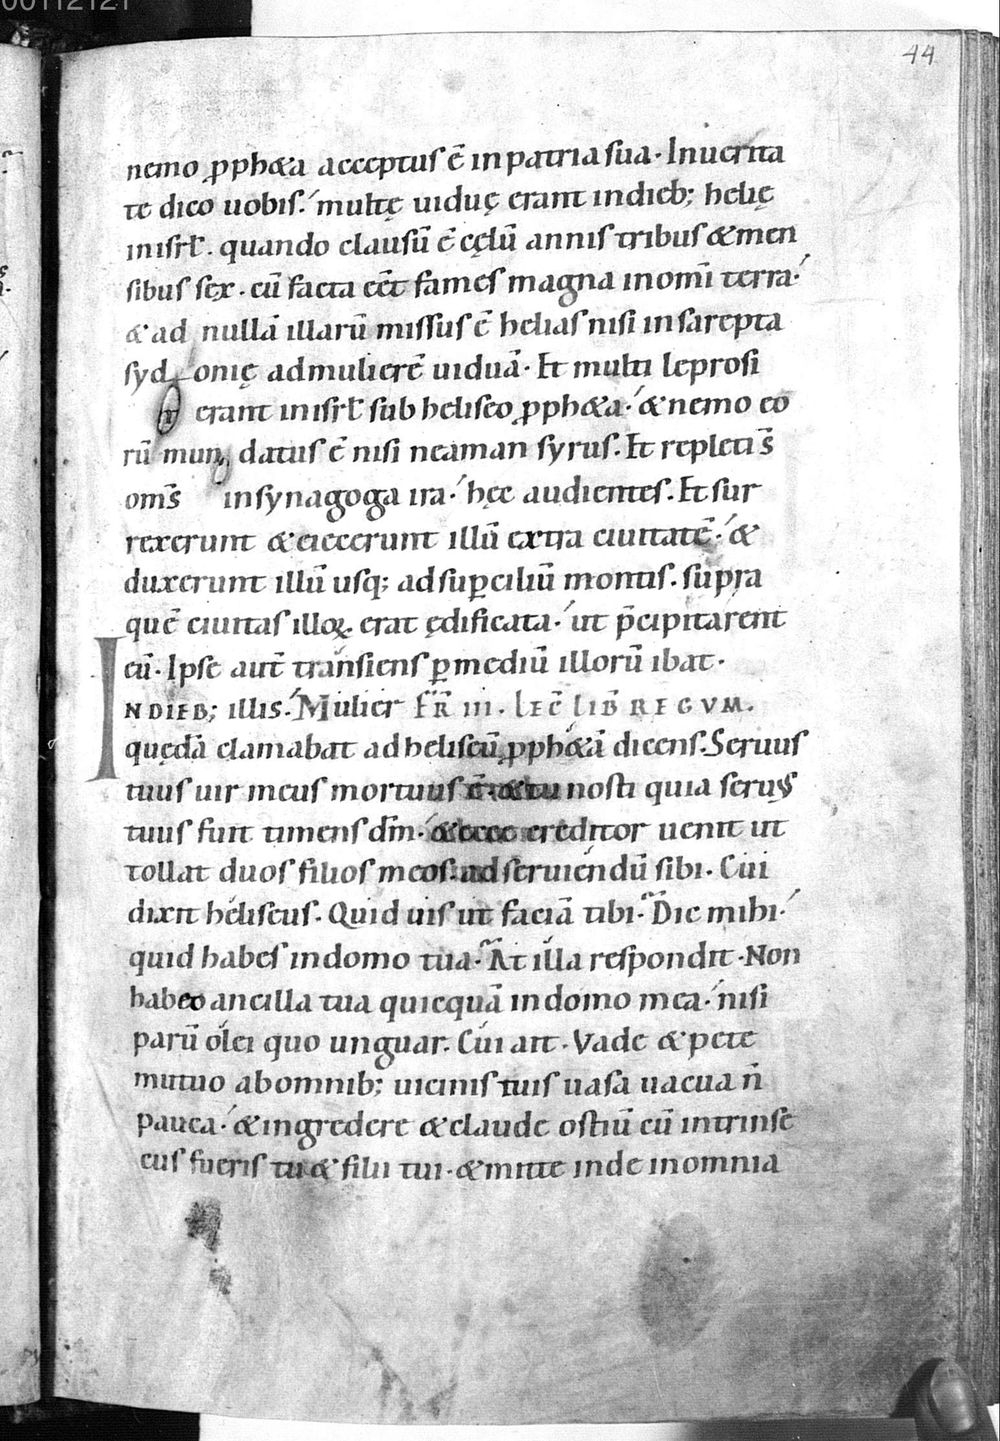 00112121
44
nemo ꝓph&a acceptus ē in patria sua. In uerita
te dico uobis. multę uiduę erant in dieb; helię
in isrł. quando clausū ē cęlū annis tribus & men
sibus sex. cū facta eēt fames magna in omī terra.
& ad nullā illarū missus ē helias nisi in sarepta
sydonię ad mulierē uiduā. Et multi leprosi
erant in isrł sub heliseo ꝓph&a. & nemo eo
rū mundatus ē nisi neaman syrus. Et repleti s̄
om̄s in synagoga ira. hęc audientes. Et sur
rexerunt & eiecerunt illū extra ciuitatē. &
duxerunt illū usq; ad suꝑciliū montis. supra
quē ciuitas illoꝝ erat ędificata. ut p̄cipitarent
eū. Ipse aut̄ transiens ꝑ mediū illorū ibat.
IN DIEB; illis. Mulier FR̄ III. LEC̄ LIB̄ REGVM.
quędā clamabat ad heliseū ꝓph&ā dicens. Seruus
tuus uir meus mortuus ē. & tu nosti quia seruus
tuus fuit timens dm̄. & ecce creditor uenit ut
tollat duos filios meos. ad seruiendū sibi. Cui
dixit heliseus. Quid uis ut faciā tibi. Dic mihi.
quid habes in domo tua. At illa respondit. Non
habeo ancilla tua quicquā in domo mea. nisi
parū olei quo unguar. Cui ait. Vade & pete
mutuo ab omnib; uicinis tuis uasa uacua n̄
pauca. & ingredere & claude ostiū cū intrinse
cus fueris tu & filii tui. & mitte inde in omnia